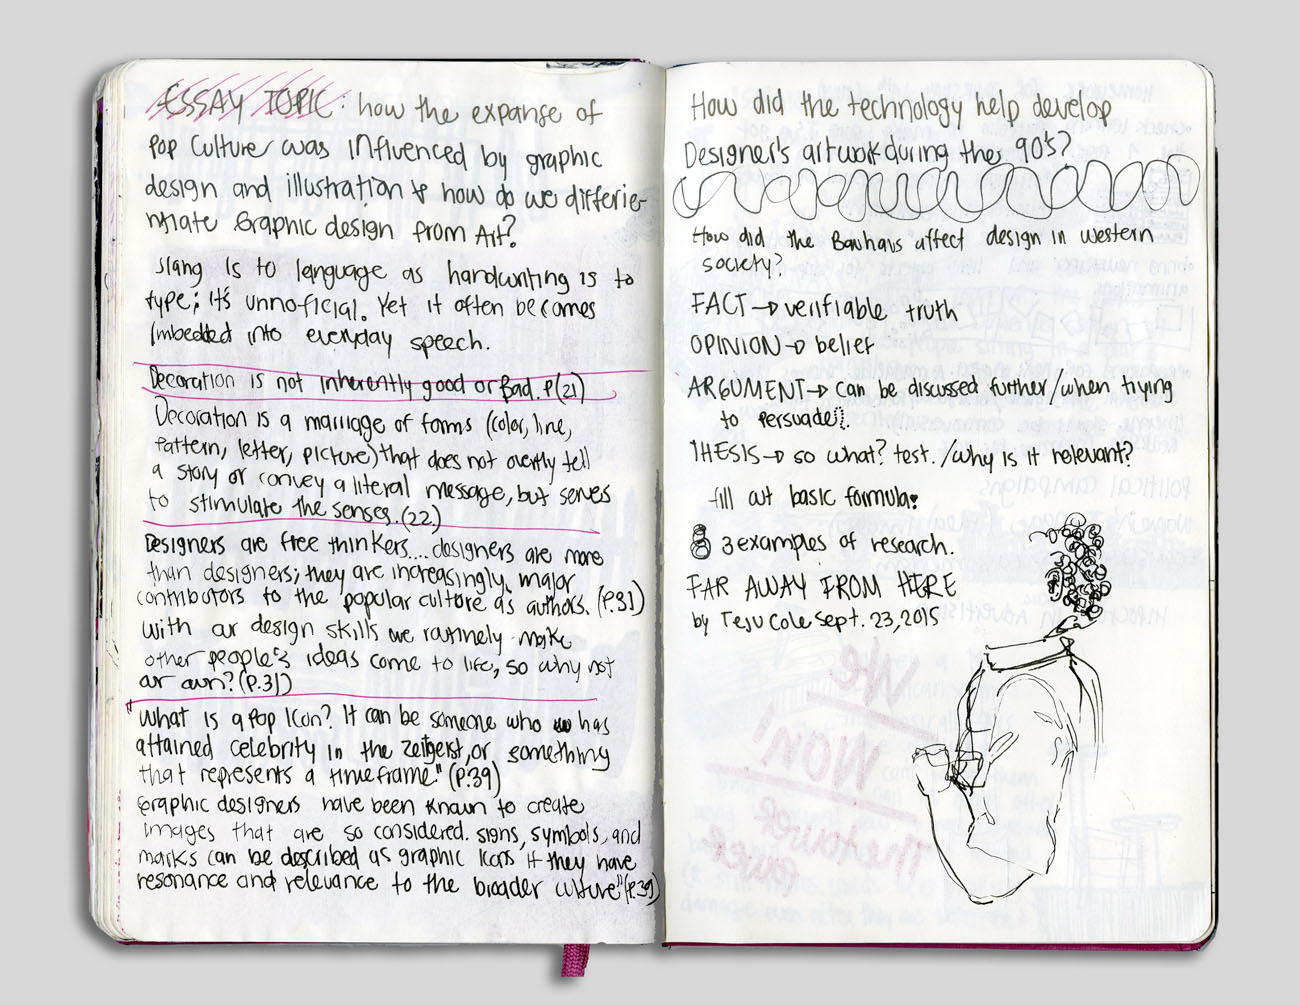 ESSAY TOPIC: how the expanse of
Pop Culture was influenced by graphic
design and illustration & how do we differie-
ntiate Graphic design from Art?
Slang is to language as handwriting is to
type; it's unnoficial. Yet it often becomes
imbedded into everyday speech.
Decoration is not inherently good or Bad. P(21)
Decoration is a marriage of forms (color, line,
Pattern, letter, picture) that does not overtly tell
a story or convey a literal message, but serves
to stimulate the senses. (22)
Designers are free thinkers.... designers are more
than designers; they are increasingly, major
contributors to the popular culture as authors. (P.31)
with our design skills we routinely make
other people's ideas come to life, so why not
our own? (P.31)
"What is a Pop Icon? It can be someone who has
attained celebrity in the zeitgeist, or something
that represents a timeframe." (P.39)
Graphic designers have been known to create
images that are so considered. signs, symbols, and
marks can be described as graphic Icons if they have
resonance and relevance to the broader culture" (P.39)
How did the technology help develop
Designer's artwork during the 90's?
How did the Bauhaus affect design in western
society?
FACT → verifiable truth
OPINION → belief
ARGUMENT → can be discussed further/when trying
to persuade.
THESIS → so what? test. /why is it relevant?
fill out basic formula:
3 examples of research.
FAR AWAY FROM HERE
by Teju Cole Sept. 23, 2015